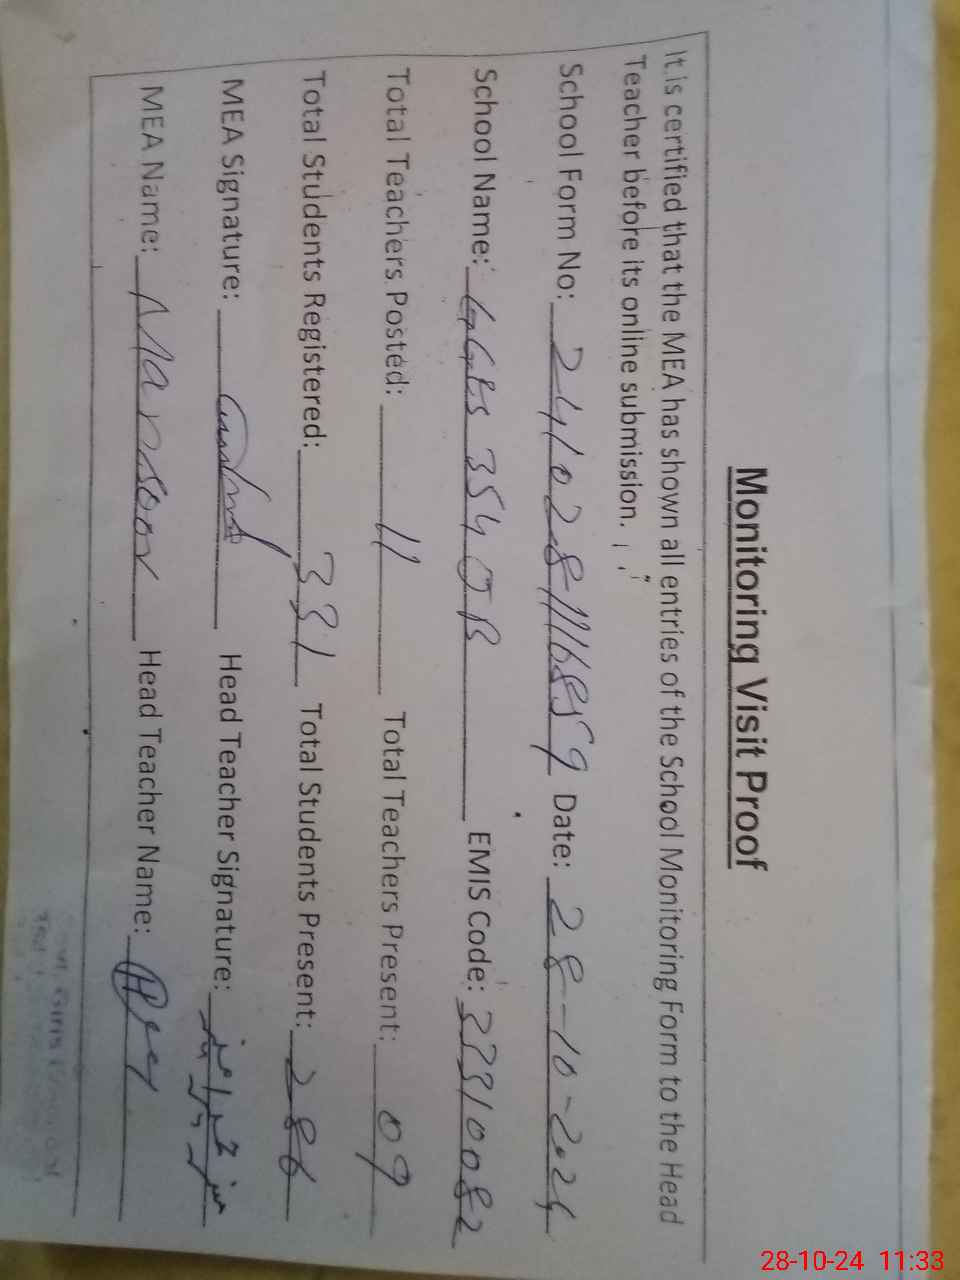 Monitoring Visit Proof
It is certified that the MEA has shown all entries of the School Monitoring Form to the Head
Teacher before its online submission.
School Form No: 241028111685859 Date: 28-10-2024
School Name: GGES 354 EB EMIS Code: 33310082
Total Teachers Posted: 11 Total Teachers Present: 09
Total Students Registered: 331 Total Students Present: 286
MEA Signature: Head Teacher Signature:
MEA Name: Mansoor Head Teacher Name:
28-10-24 11:33